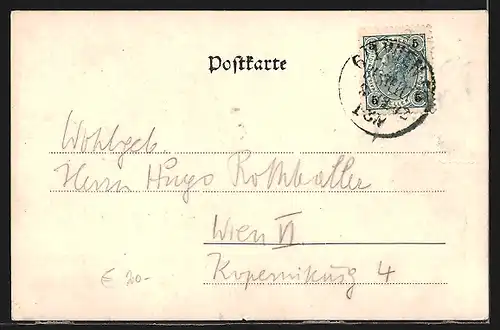 Postkarte
5 5
6 6
Wohlgeb
Herrn Hugo Rothballer
Wien VI
Kopernikusg 4
€ 20-